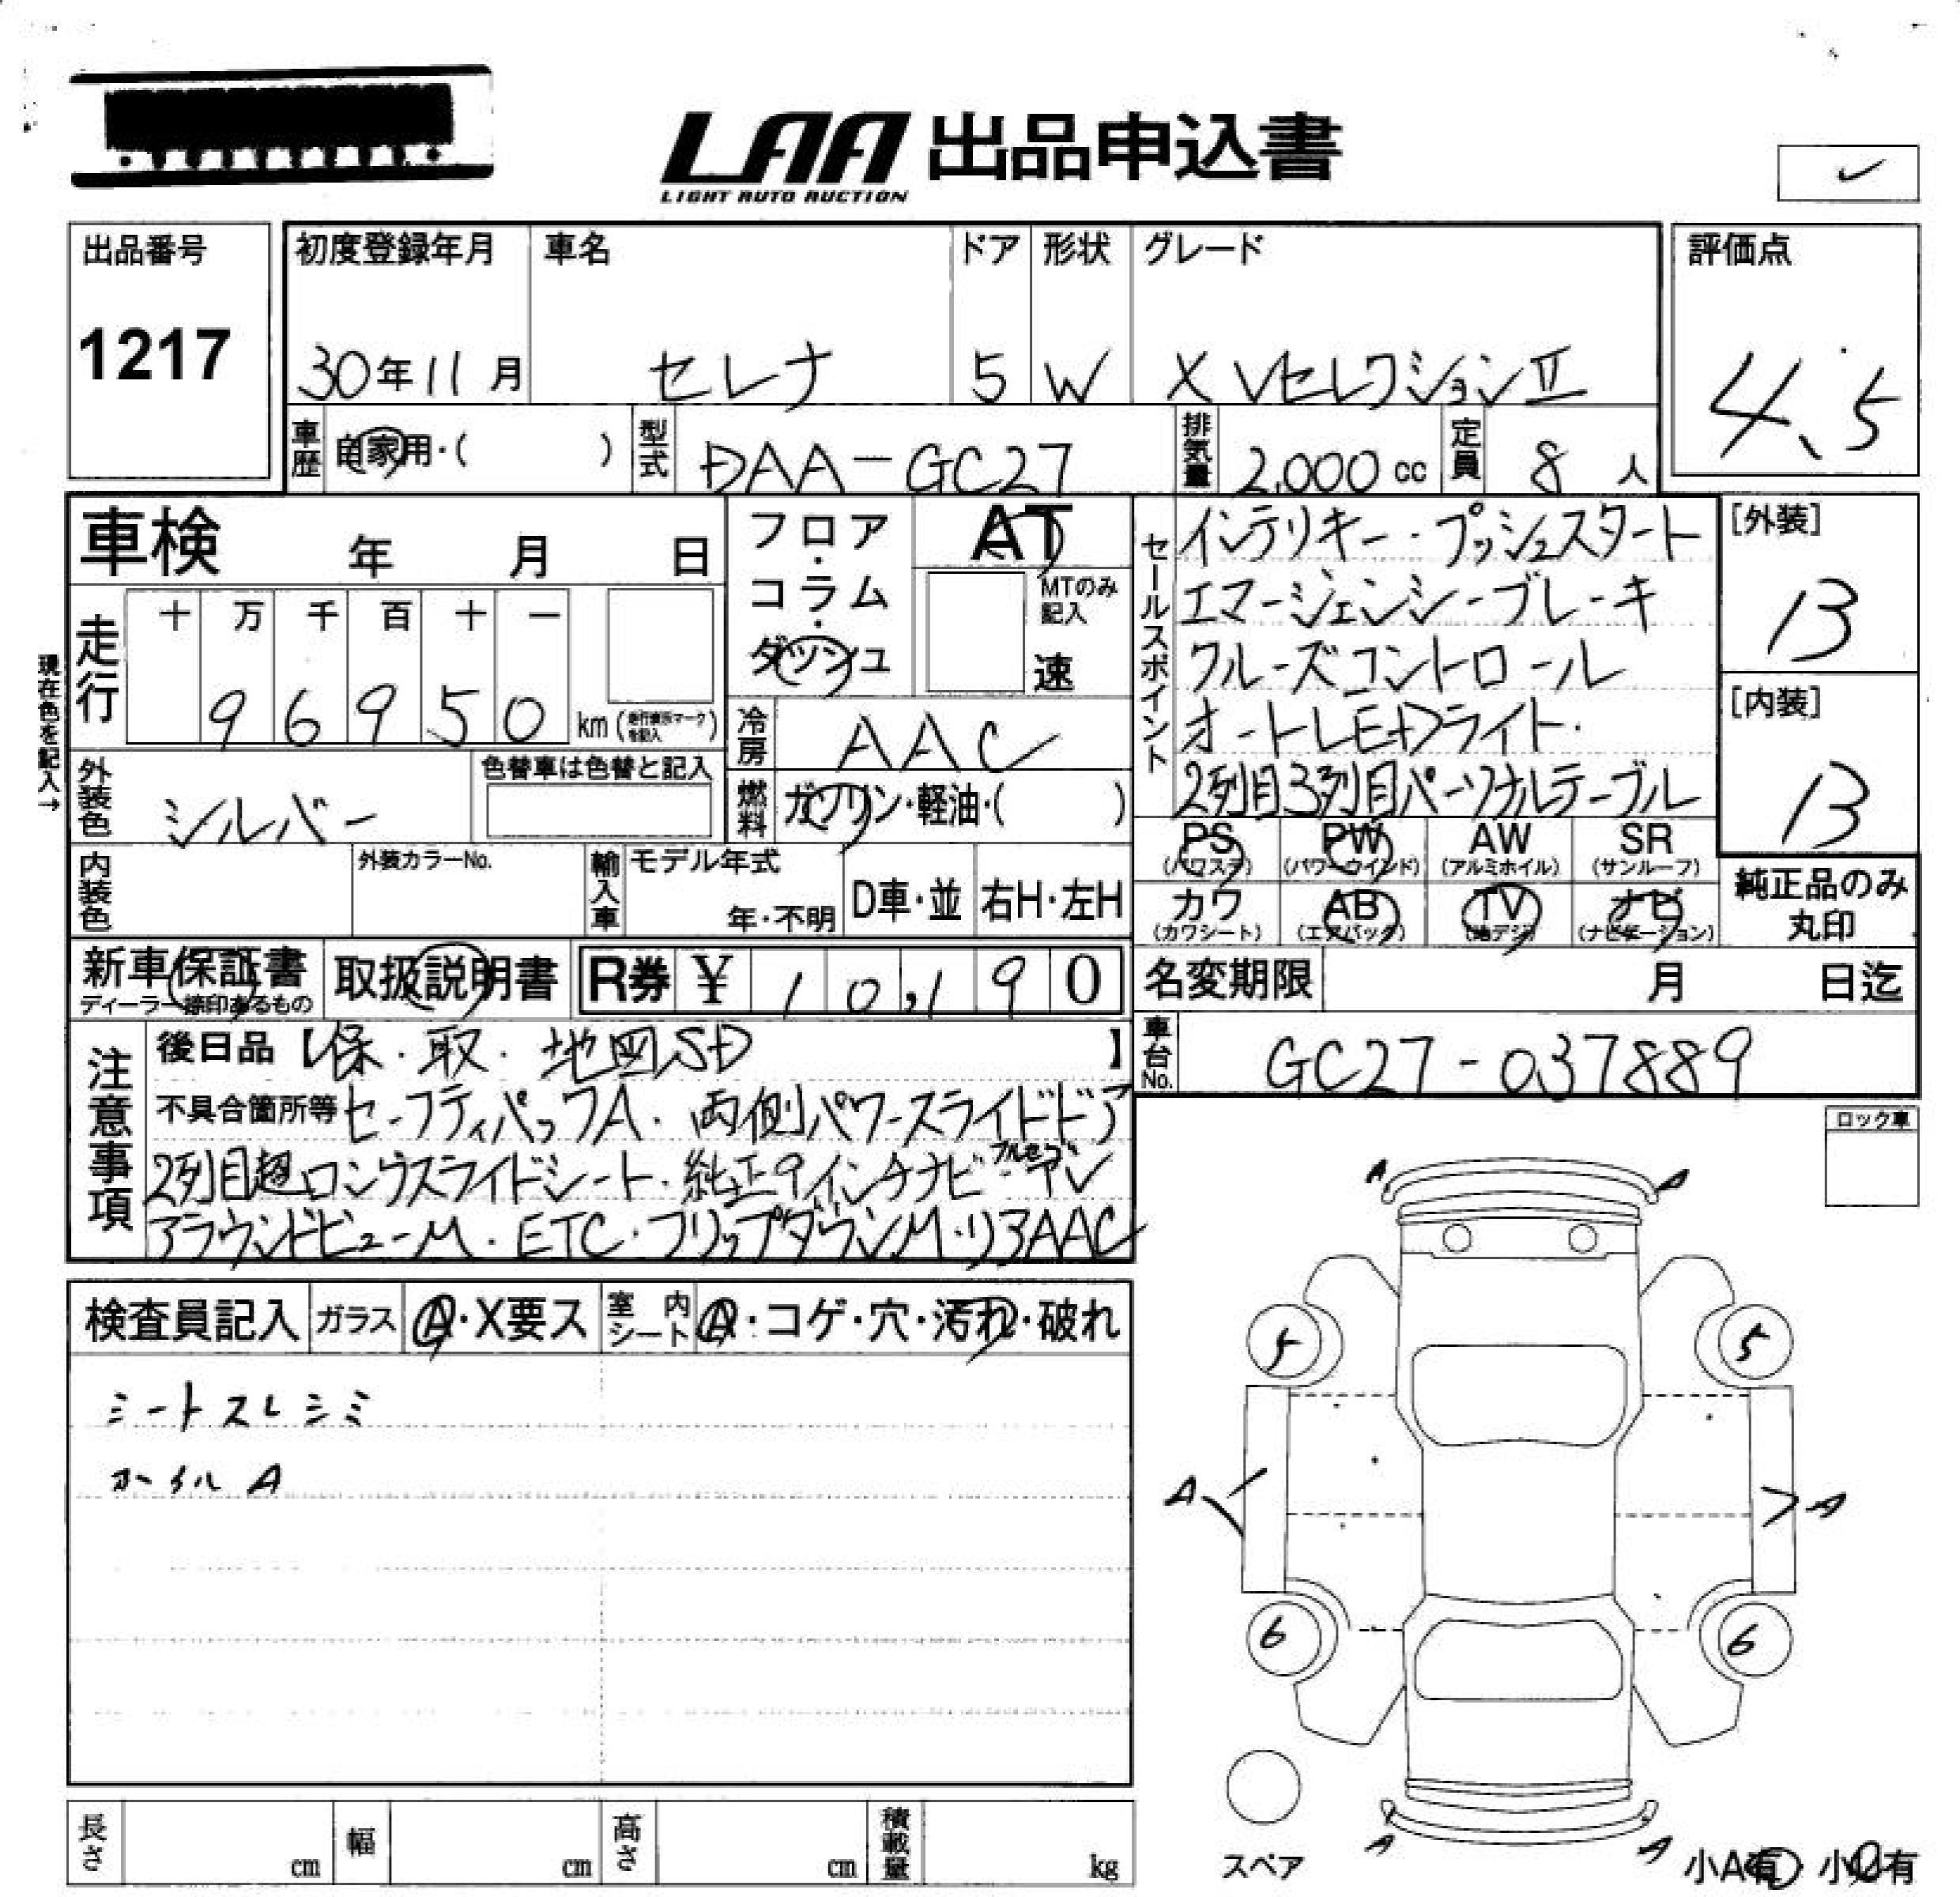 LAA 出品申込書
LIGHT AUTO AUCTION
出品番号
1217
初度登録年月
30年11月
車名
セレナ
ドア
5
形状
W
グレード
X VセレクションⅡ
評価点
4.5
車歴
自家用・( )
型式
DAA-GC27
排気量
2,000 cc
定員
8 人
車検 年 月 日
現在色を記入→
走行
十 万 千 百 十 一
9 6 9 5 0 km (走行表示マークを記入)
フロア・コラム・ダッシュ
AT
MTのみ記入
速
冷房
AAC
燃料
ガソリン・軽油・( )
外装色
シルバー
色替車は色替と記入
内装色
外装カラーNo.
輸入車
モデル年式
年・不明
D車・並
右H・左H
新車保証書
ディーラー捺印あるもの
取扱説明書
R券 ¥ 10,190
セールスポイント
インテリキー・プッシュスタート
エマージェンシーブレーキ
クルーズコントロール
オートLEDライト・
2列目3列目パーソナルテーブル
[外装]
B
[内装]
B
PS (パワステ)
PW (パワーウインド)
AW (アルミホイル)
SR (サンルーフ)
カワ (カワシート)
AB (エアバック)
TV (地デジ)
ナビ (ナビゲーション)
純正品のみ
丸印
名変期限 月 日迄
車台No.
GC27-037889
注意事項
後日品【保・取・地図SD 】
不具合箇所等 セーフティパックA・両側パワースライドドア
2列目超ロングスライドシート・純正9インチナビ・フルセグTV
アラウンドビューM・ETC・フリップダウンM・リアAAC
ロック車
検査員記入
ガラス
A・X要ス
室内シート
A・コゲ・穴・汚れ・破れ
シートスレシミ
ホイルA
A A
5 5
A A
6 6
A A
スペア
小A有・小U有
長さ cm
幅 cm
高さ cm
積載量 kg